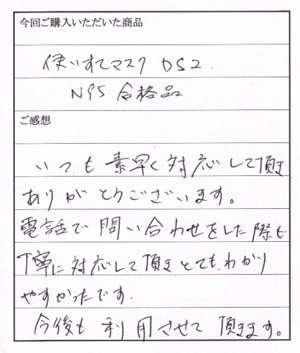 今回ご購入いただいた商品
使いすてマスク DS2.
N95 合格品
ご感想
いつも 素早く対応して頂き
ありがとうございます。
電話で 問い合わせをした際も
丁寧に対応して頂きとてもわかり
やすかったです.
今後も 利用させて 頂きます。